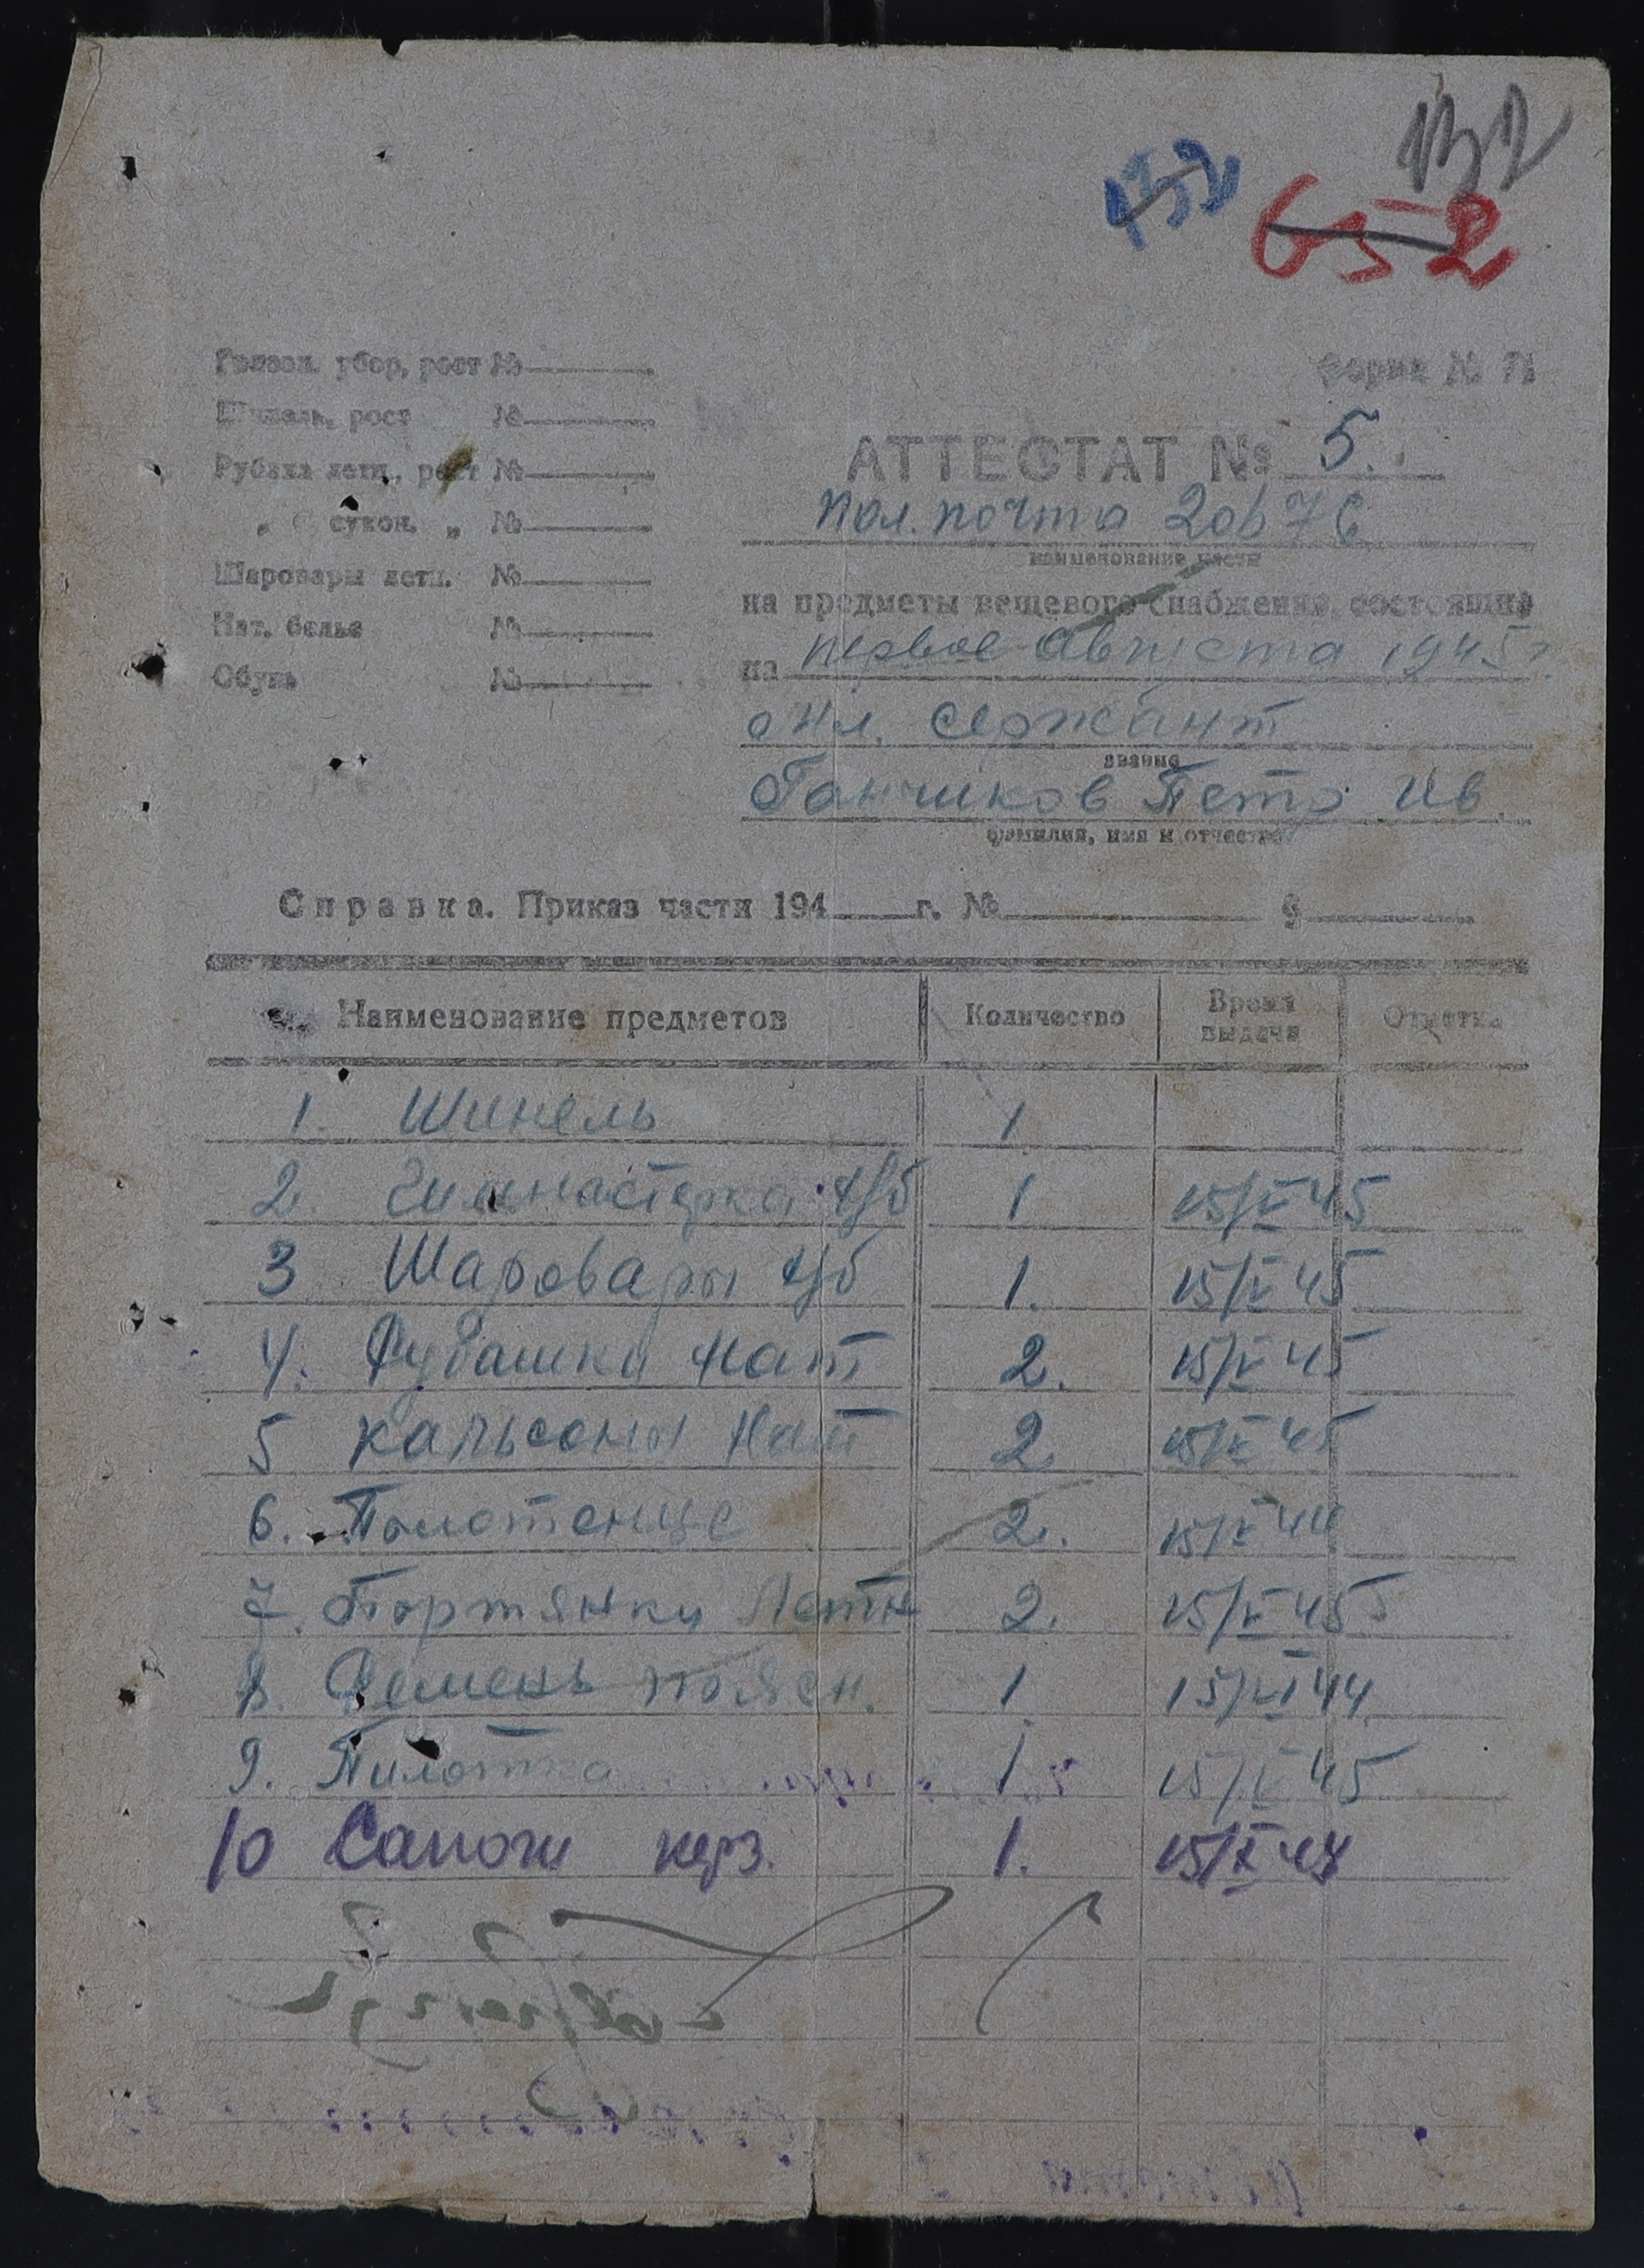 132
132
652
Головн. убор, рост №
Форма № 71
Шинель, рост №
АТТЕСТАТ № 5.
Рубаха летн., рост №
Пол. почта 20676
„ сукон. „ №
наименование части
Шаровары летн. №
на предметы вещевого снабжения, состоящие
Нат. белье №
на первое Августа 1945 г.
Обувь №
мл. сержант
звание
Ганчиков Петр Ив
фамилия, имя и отчество
Справка. Приказ части 194 г. № §
Наименование предметов Количество Время выдачи Отметка
1. Шинель 1
2. Гимнастерка х/б 1 15/V 45
3 Шаровары х/б 1. 15/V 45
4. Рубашки нат 2. 15/V 45
5 кальсоны нат 2 15/V 45
6. Полотенце 2. 15/V 44
7. Портянки Летн 2. 15/V 45
8. Ремень поясн. 1 15/VI 44
9. Пилотка 1. 15/V 45
10 Сапоги кирз. 1. 15/X